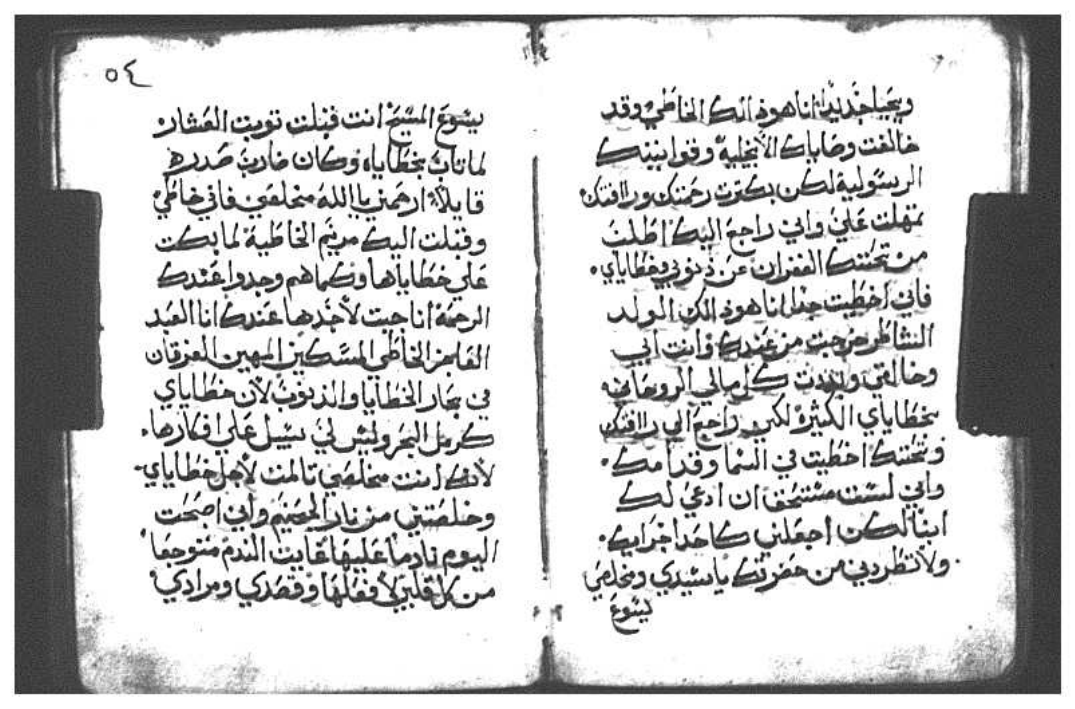 ويحيا جديدًا انا هوذلك الخاطي وقد
خالفت وصاياك الانجلية وقوانينك
الرسولية لكن بكترت رحمتك ورافتك
تمهلت علي واني راجع اليك اطلب
من تحننك الغفران عن ذنوبي وخطاياي.
فاني اخطيت جدا انا هوذلك الولد
الشاطر خرجت من عندك وانت ابي
وخالقي وبددت كل مالي الروحانيه
بخطاياي الكثيرة لكن راجع الي رافتك
وتحننك اخطيت في السما وقدامك.
واني لست مستحق ان ادعي لك
ابنا لكن اجعلني كاحد اجرايك.
ولا تطردني من حضرتك يا سيدي ومخلصي
يسوع
٥٤
يسوع المسيح انت قبلت توبت العشار
لما تاب بخطاياه وكان ضارب صدره
قايلا ارحمني يا الله مخلصي فاني خاطي
وقبلت اليك مريم الخاطية لما بكت
علي خطاياها وكماهم وجدوا عندك
الرحمة انا جيت لأجدها عندك انا العبد
الفاجر الخاطي المسكين المهين الغرقان
في بحار الخطايا والذنوب لان خطاياي
كرمل البحر وليس لي سبيل علي افكارها.
لانك انت مخلصي تالمت لاجل خطاياي
وخلصتني من نار الجحيم واني اصبحت
اليوم نادما عليها غايت الندم متوجعا
من كل قلبي لأفعلها وقصدي ومرادي